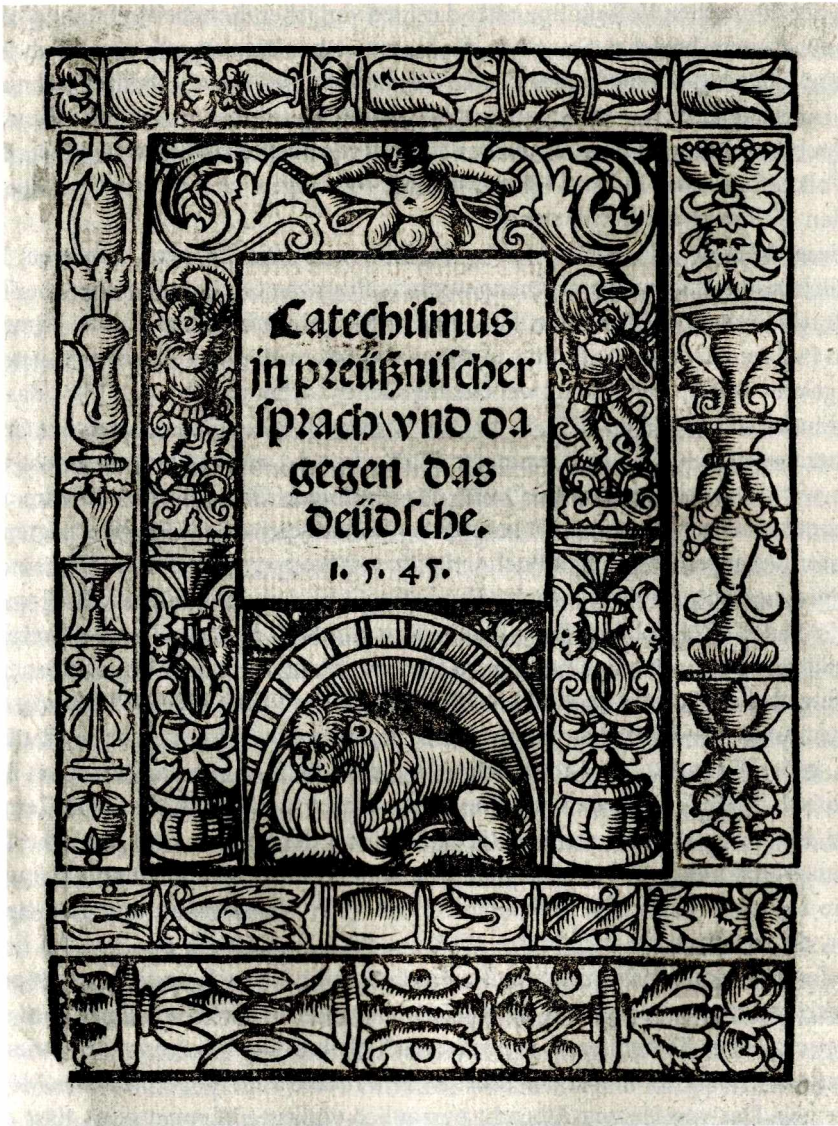 Catechiſmus
jn preüßniſcher
ſprach\vnd da
gegen das
deüdſche.
1. 5. 45.